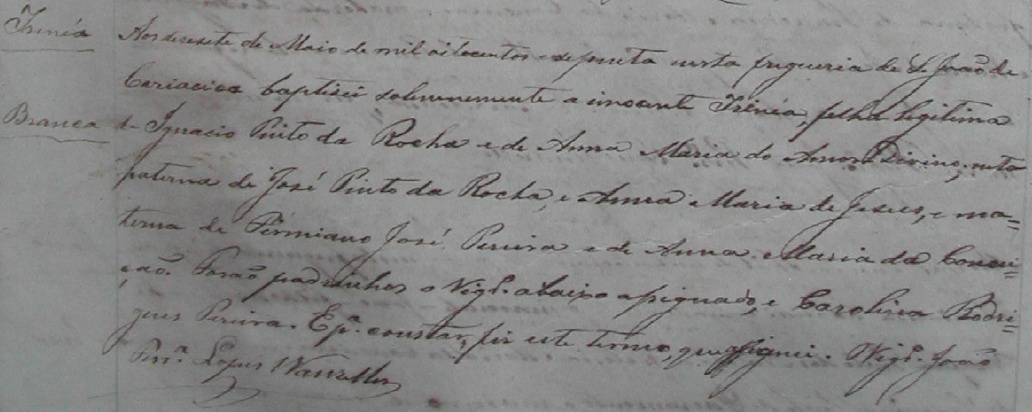 Irinéa
Branca
Aos desesete de Maio de mil oitocentos e setenta nesta freguesia de S. João de
Cariacica baptisei solemnemente a innocente Irinéa, filha legitima
de Ignacio Pinto da Rocha e de Anna Maria do Amor Divino, neta
paterna de José Pinto da Rocha, e Anna Maria de Jesus, e ma=
terna de Firmiano José Pereira e de Anna Maria da Concei=
ção. Forão padrinhos o Vigr.º abaixo assignado, e Carolina Rodri=
gues Pereira. E p.ª constar, fiz este termo, que assignei. Vigr.º João
Pinr.º Lopes Wanzeller